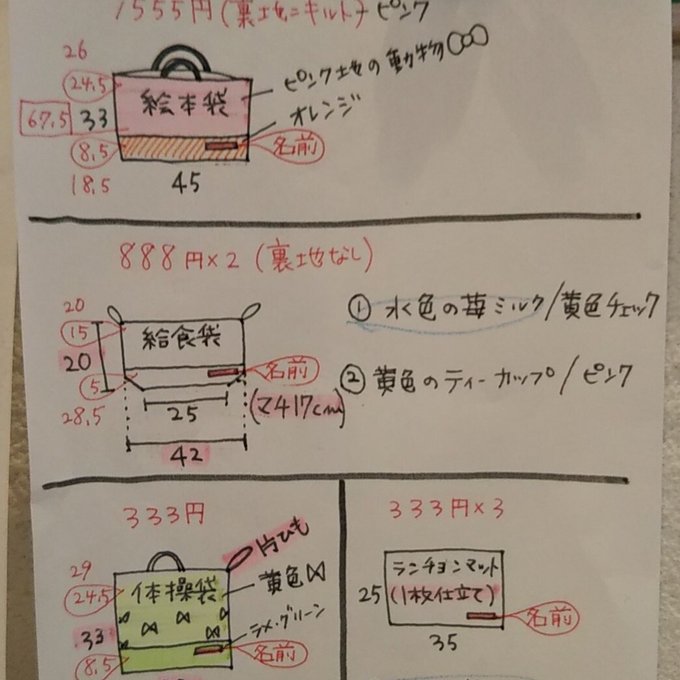 1555円(裏地=キルト)ピンク
26
24.5
絵本袋
ピンク地の動物
67.5 33
オレンジ
8.5
名前
18.5
45
888円×2(裏地なし)
20
15
給食袋
20
5
名前
28.5
25
(マチ17cm)
42
① 水色の苺ミルク/黄色チェック
② 黄色のティーカップ/ピンク
333円
片ひも
29
24.5
体操袋
黄色
33
ラメ・グリーン
8.5
名前
333円×3
ランチョンマット
25
(1枚仕立て)
名前
35